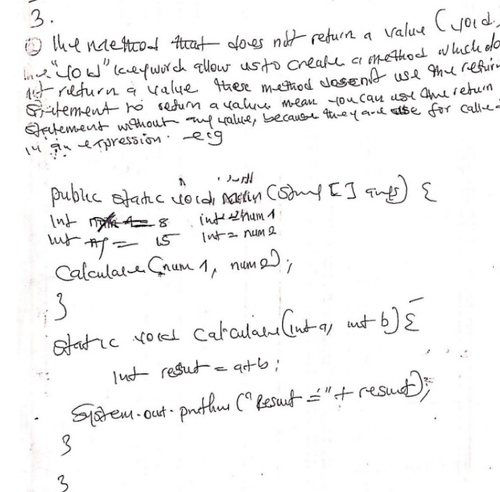 3.
① The method that does not return a value (void,
the "void" keyword allow us to create a method which do
not return a value these method doesnt use the return
statement to return a value mean you can use the return
statement without any value, because they are use for calle
in an expression. eg
public static void main (String [] args) {
Int = 8 int = num 1
Int = 15 Int = num 2
Calculate (num 1, num 2);
}
static void calculate (int a, int b) {
Int result = a+b;
System.out.println ("Result =" + result);
}
}